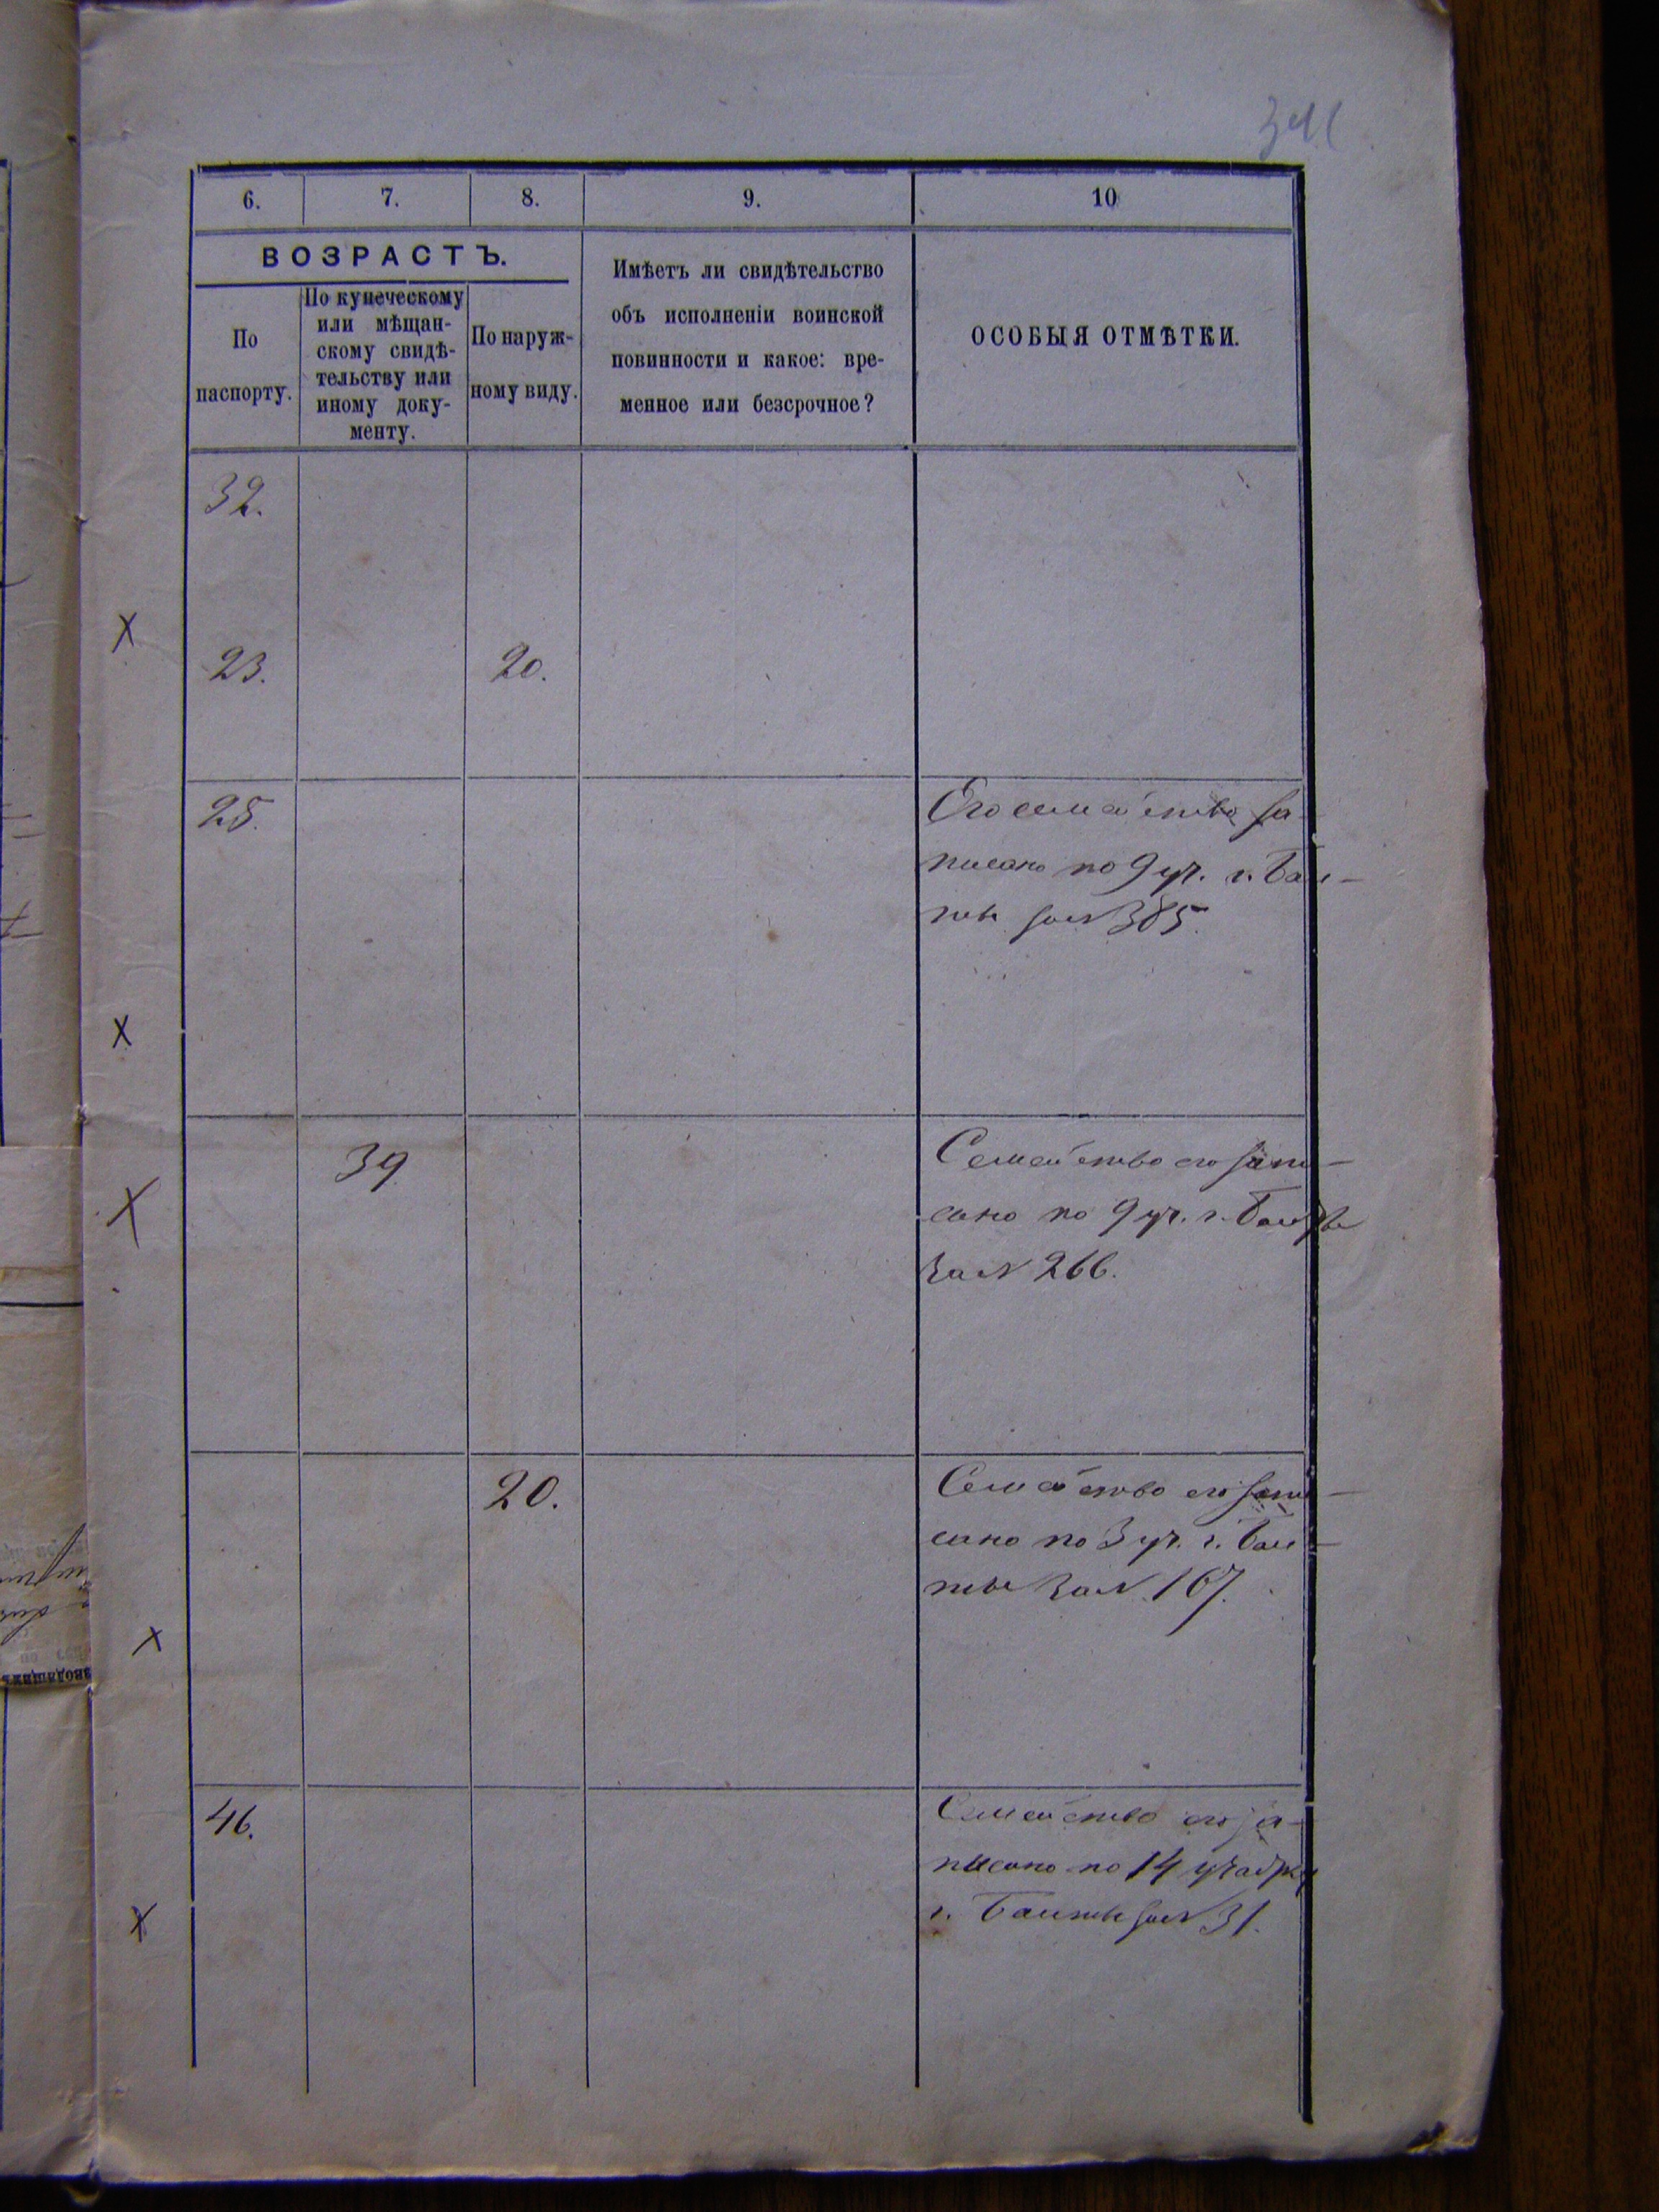 341
6. 7. 8. 9. 10
ВОЗРАСТЪ.
По
паспорту.
По купеческому
или мѣщан-
скому свидѣ-
тельству или
иному доку-
менту.
По наруж-
ному виду.
Имѣетъ ли свидѣтельство
объ исполненіи воинской
повинности и какое: вре-
менное или безсрочное?
ОСОБЫЯ ОТМѢТКИ.
32.
23. 20.
25. Его семейство за-
писано по 9 уч. г. Бал-
ты за № 385.
39 Семейство его запи-
сано по 9 уч. г. Балты
за № 266.
20. Семейство его запи-
сано по 3 уч. г. Бал-
ты за № 167.
46. Семейство его за-
писано по 14 участку
г. Балты за № 31.